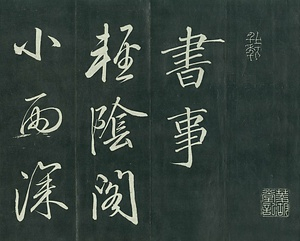 書事
輕陰閣
小雨深